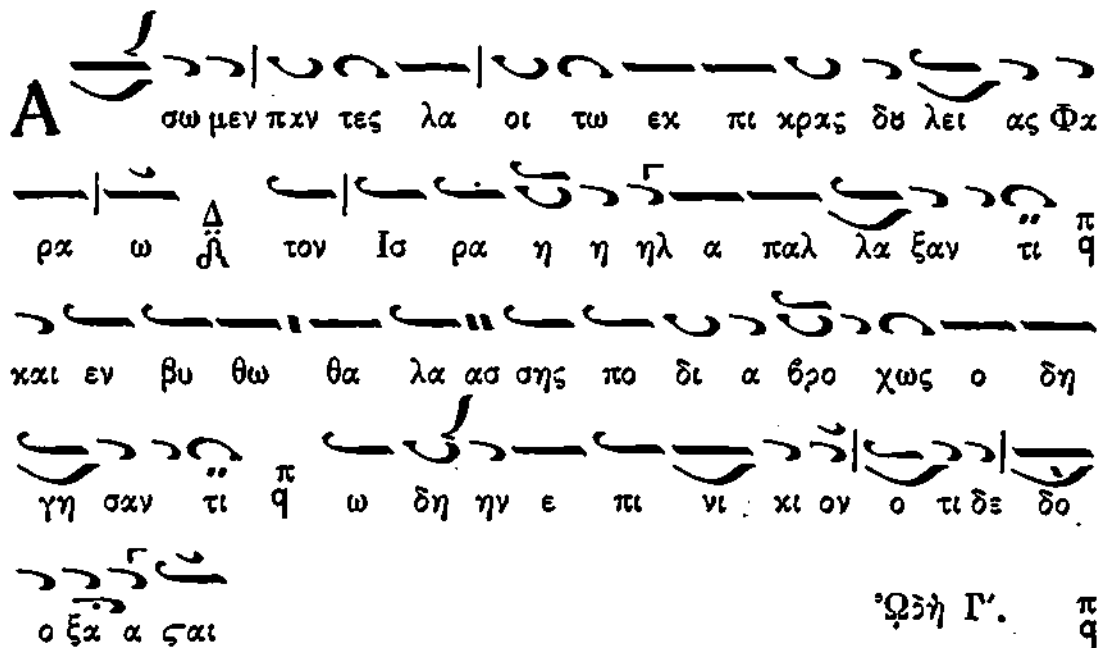 Α σω μεν παν τες λα οι τω εκ πι κρας δȣ λει ας Φα
ρα ω Δ τον Ισ ρα η η ηλ α παλ λα ξαν τι π q
και εν βυ θω θα λα ασ σης πο δι α βρο χως ο δη
γη σαν τι π q ω δη ην ε πι νι κι ον ο τι δε δο
ο ξα α ϛαι ᾨδὴ Γ΄. π q